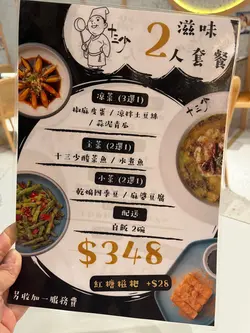 十三少
滋味
2人套餐
凉菜 (3選1)
椒麻皮蛋 / 涼拌土豆絲
/ 蒜泥青瓜
主菜 (2選1)
十三少酸菜魚 / 水煮魚
小菜 (2選1)
乾煸四季豆 / 麻婆豆腐
配送
白飯 2碗
$348
紅糖糍粑 +$28
另收加一服務費